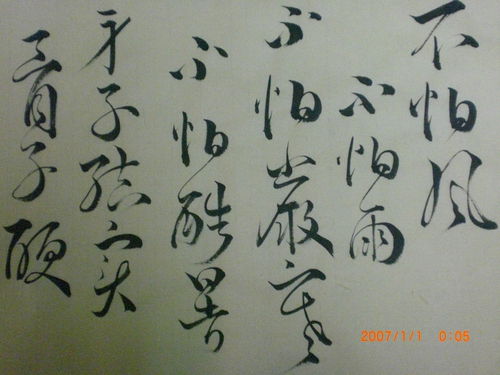 不怕风
不怕雨
不怕嚴寒
不怕酷暑
身子结实
骨子硬
2007/1/1 0:05